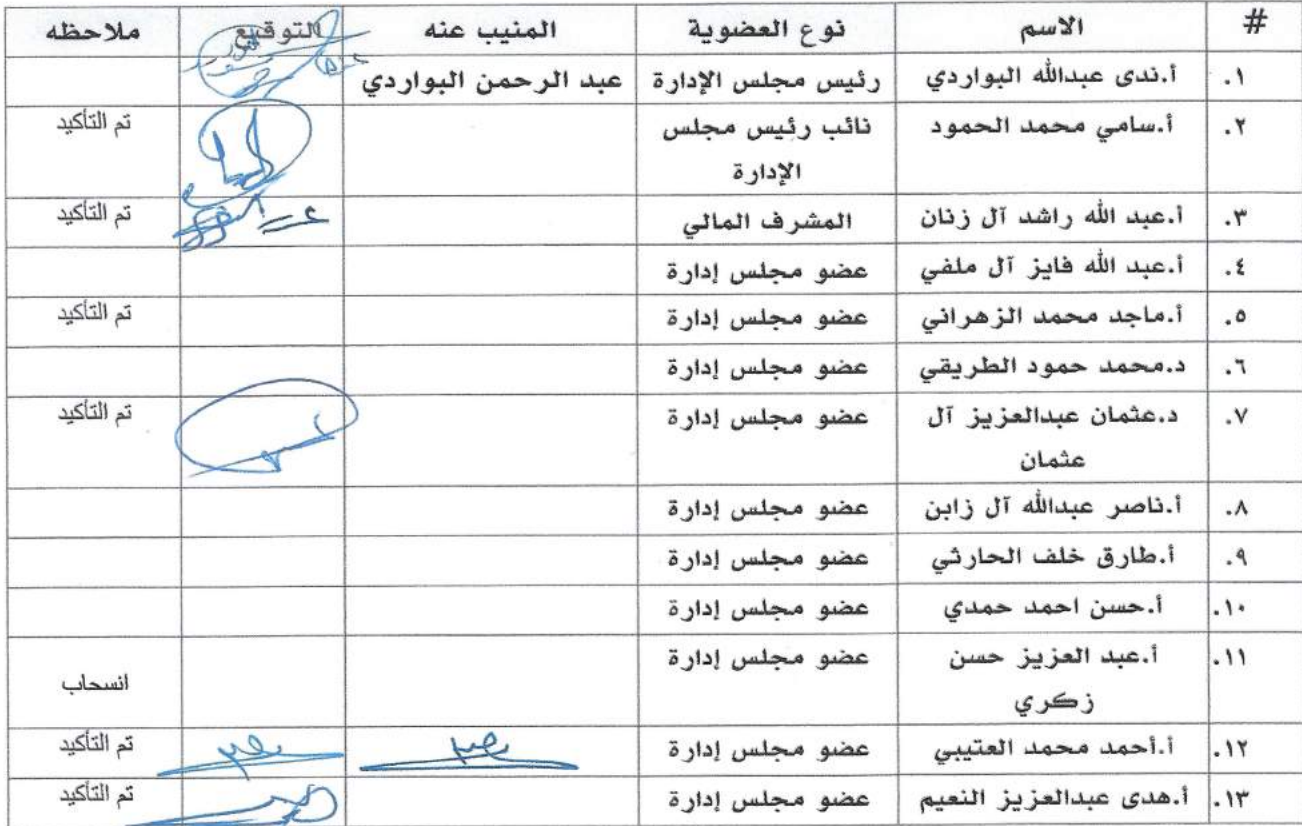 # الاسم نوع العضوية المنيب عنه التوقيع ملاحظه
١. أ.ندى عبدالله البواردي رئيس مجلس الإدارة عبد الرحمن البواردي
٢. أ.سامي محمد الحمود نائب رئيس مجلس تم التأكيد
الإدارة
٣. أ.عبد الله راشد آل زنان المشرف المالي تم التأكيد
٤. أ.عبد الله فايز آل ملفي عضو مجلس إدارة
٥. أ.ماجد محمد الزهراني عضو مجلس إدارة تم التأكيد
٦. د.محمد حمود الطريقي عضو مجلس إدارة
٧. د.عثمان عبدالعزيز آل عضو مجلس إدارة تم التأكيد
عثمان
٨. أ.ناصر عبدالله آل زابن عضو مجلس إدارة
٩. أ.طارق خلف الحارثي عضو مجلس إدارة
١٠. أ.حسن احمد حمدي عضو مجلس إدارة
١١. أ.عبد العزيز حسن عضو مجلس إدارة انسحاب
زكري
١٢. أ.أحمد محمد العتيبي عضو مجلس إدارة تم التأكيد
١٣. أ.هدى عبدالعزيز النعيم عضو مجلس إدارة تم التأكيد